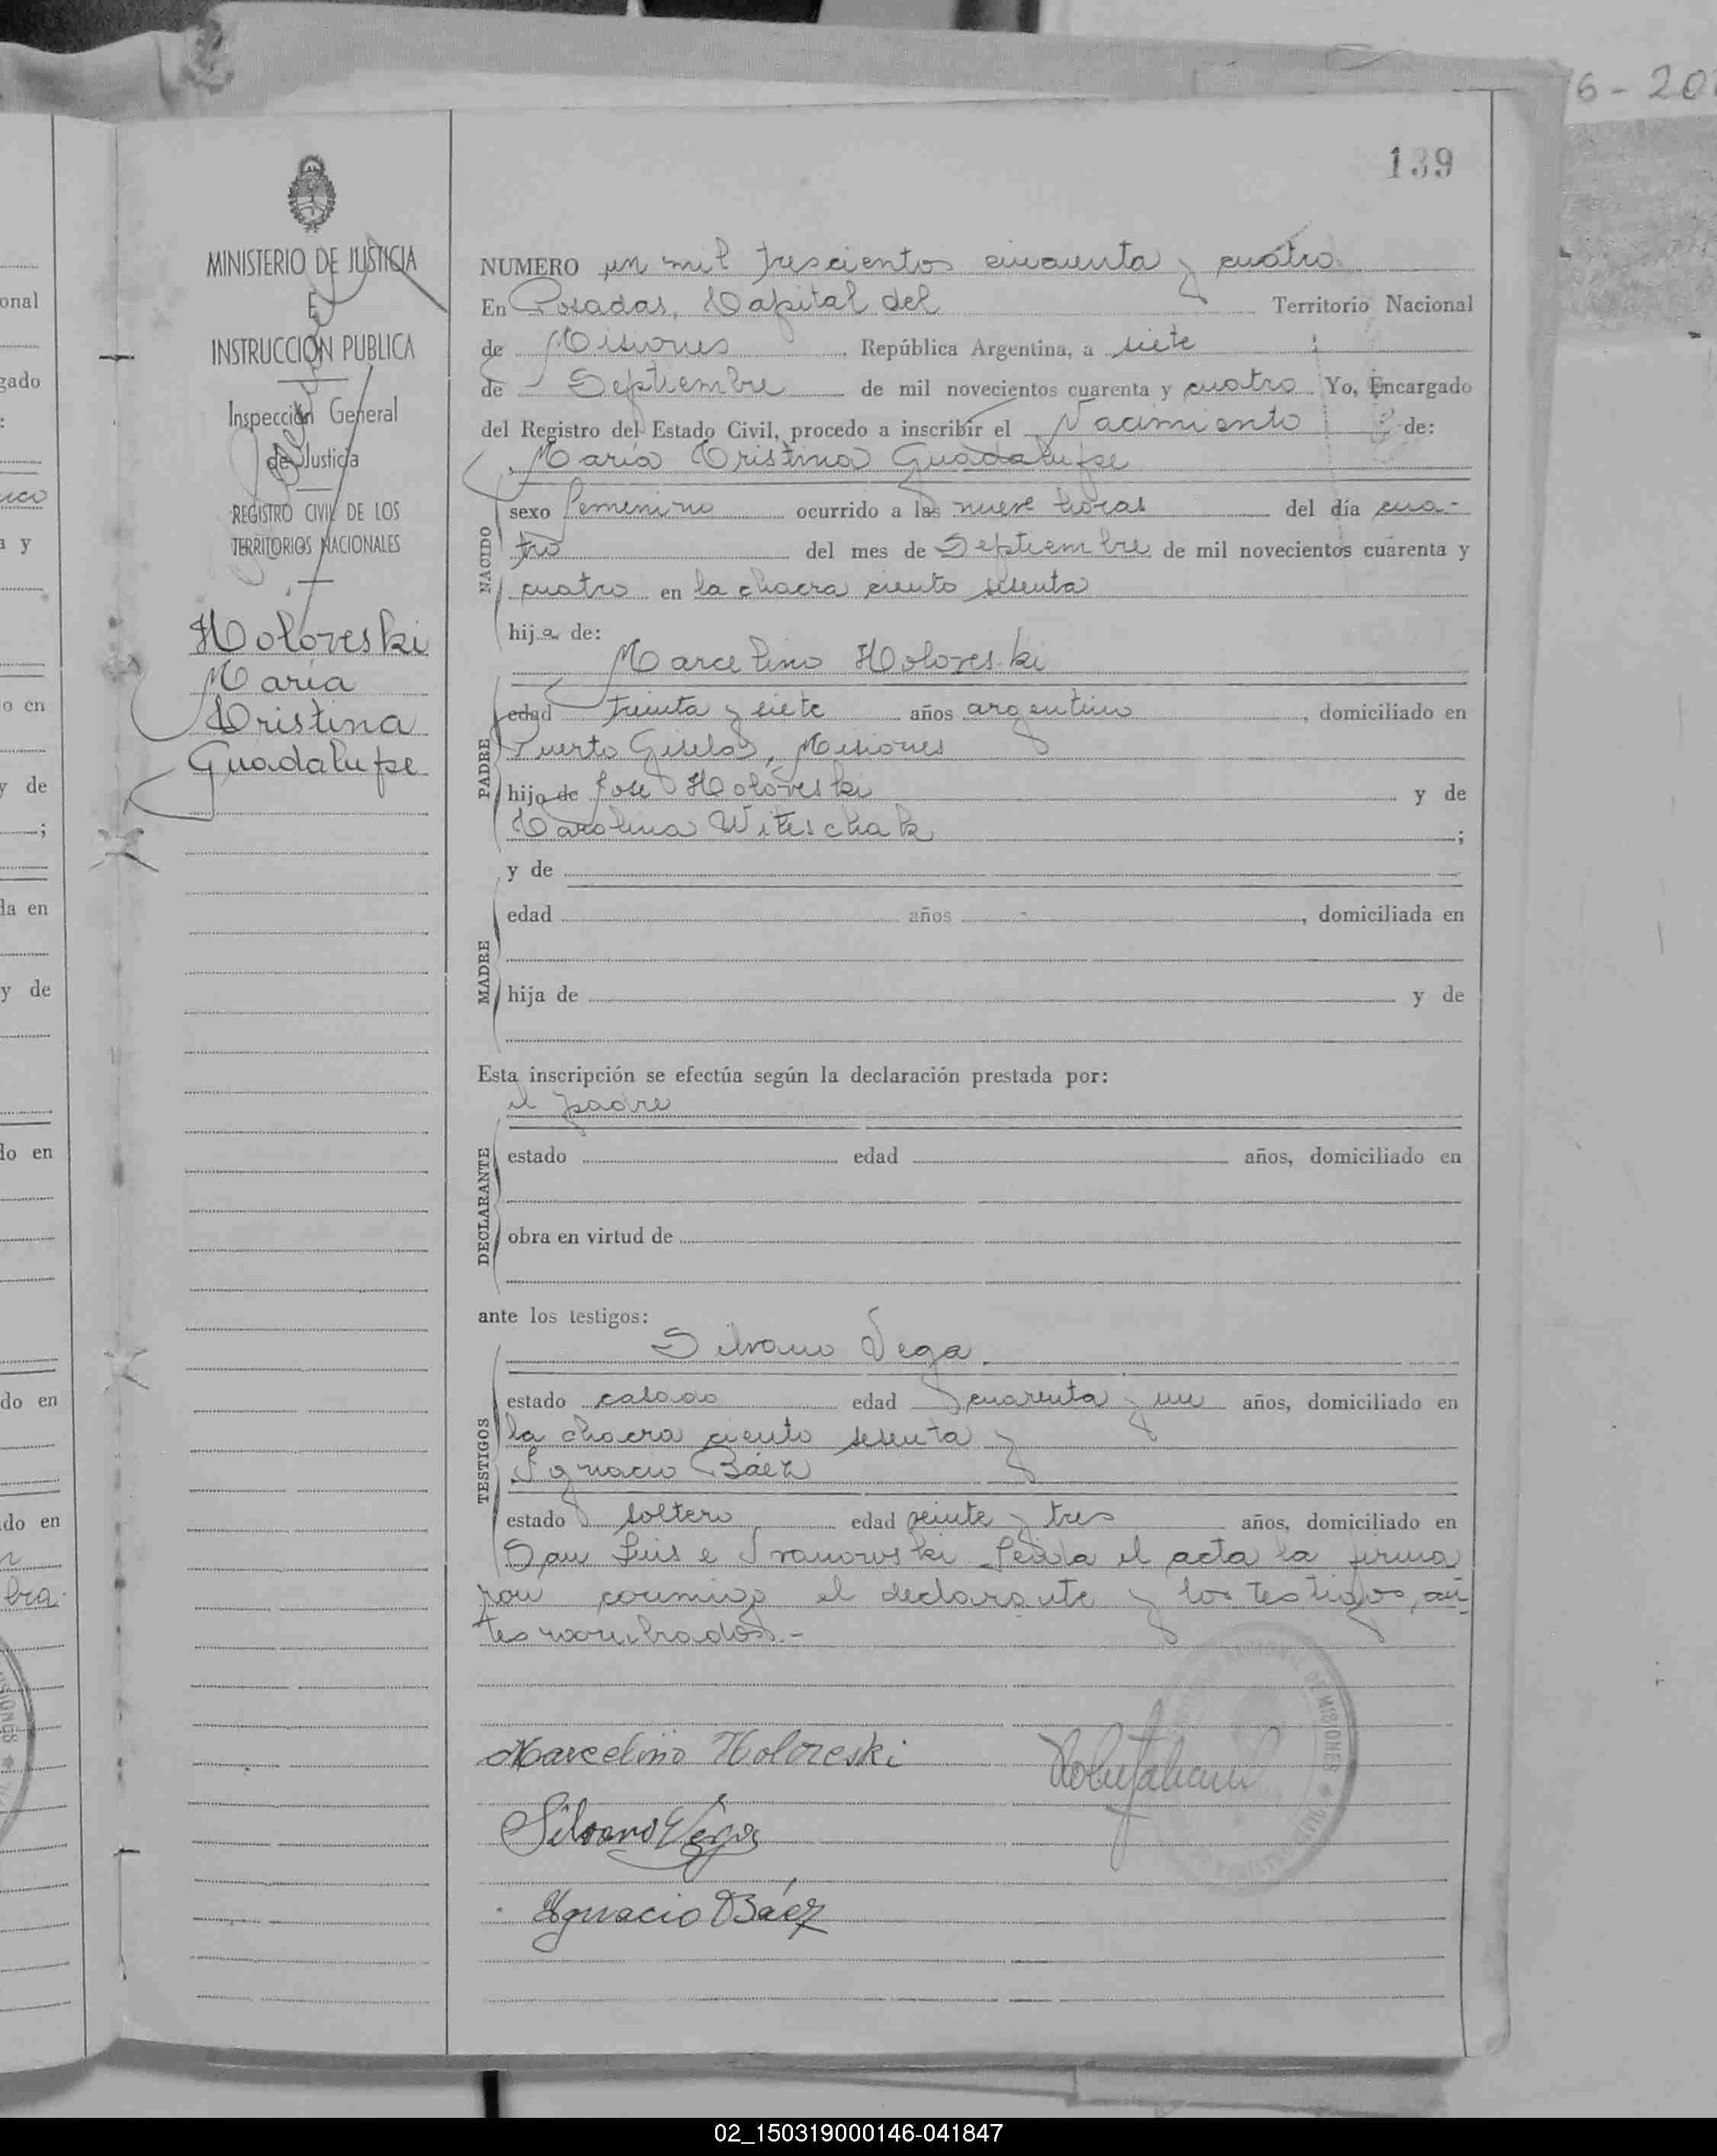 6-20
139
MINISTERIO DE JUSTICIA
E
INSTRUCCION PUBLICA
Inspección General
de Justicia
REGISTRO CIVIL DE LOS
TERRITORIOS NACIONALES
Holoveski
María
Cristina
Guadalupe
NUMERO un mil trescientos cincuenta y cuatro
En Posadas, Capital del Territorio Nacional
de Misiones, República Argentina, a siete
de Septiembre de mil novecientos cuarenta y cuatro Yo, Encargado
del Registro del Estado Civil, procedo a inscribir el Nacimiento de:
María Cristina Guadalupe
NACIDO
sexo femenino ocurrido a las nueve horas del día cua-
tro del mes de Septiembre de mil novecientos cuarenta y
cuatro en la chacra ciento sesenta
hija de:
Marcelino Holoveski
PADRE
edad treinta y siete años argentino, domiciliado en
Puerto Gisela, Misiones
hijo de José Holoveski y de
Carolina Witischak;
y de
MADRE
edad años, domiciliada en
hija de y de
Esta inscripción se efectúa según la declaración prestada por:
el padre
DECLARANTE
estado edad años, domiciliado en
obra en virtud de
ante los testigos:
Silvano Vega
TESTIGOS
estado casado edad cuarenta y un años, domiciliado en
la chacra ciento sesenta y
Ignacio Báez
estado soltero edad veinte y tres años, domiciliado en
San Luis e Ivanowski Leída el acta la firma
ron conmigo el declarante y los testigos, an
tes nombrados.-
Marcelino Holoveski
Silvano Vega
Ignacio Báez
DE MISIONES
02_150319000146-041847